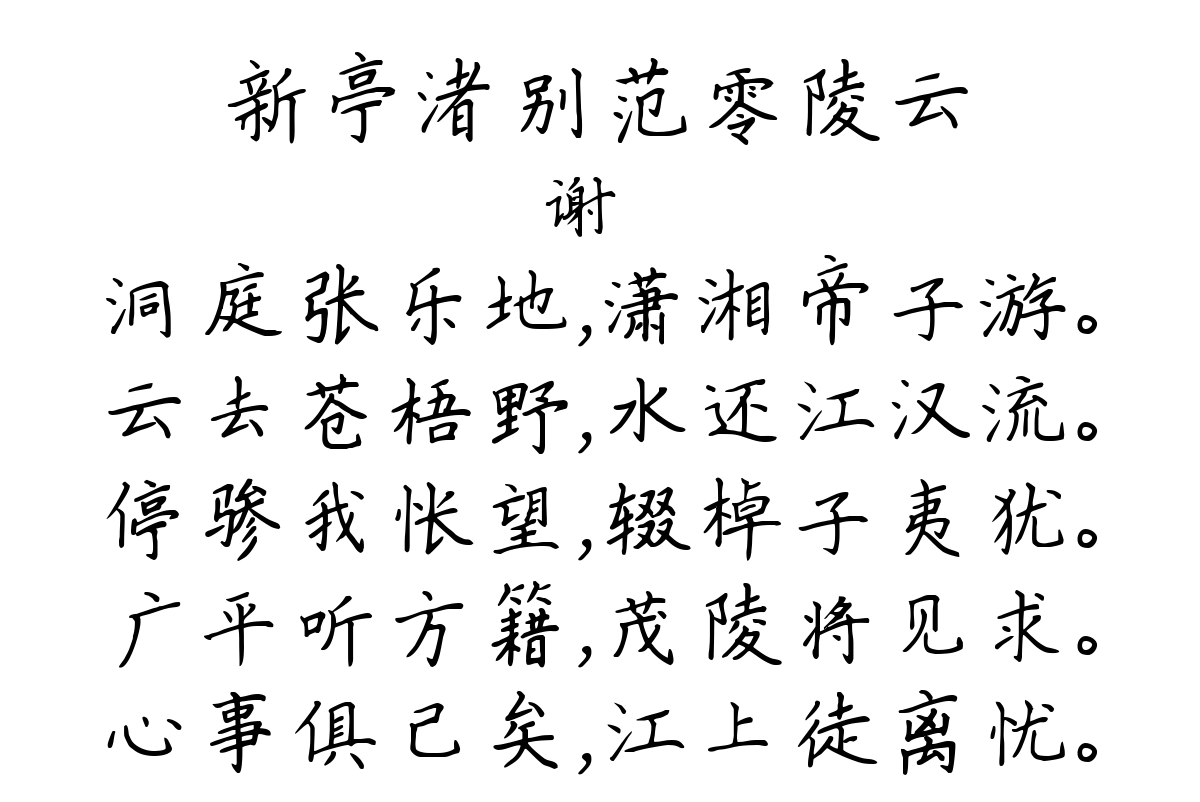 新亭渚别范零陵云
谢
洞庭张乐地,潇湘帝子游。
云去苍梧野,水还江汉流。
停骖我怅望,辍棹子夷犹。
广平听方籍,茂陵将见求。
心事俱己矣,江上徒离忧。